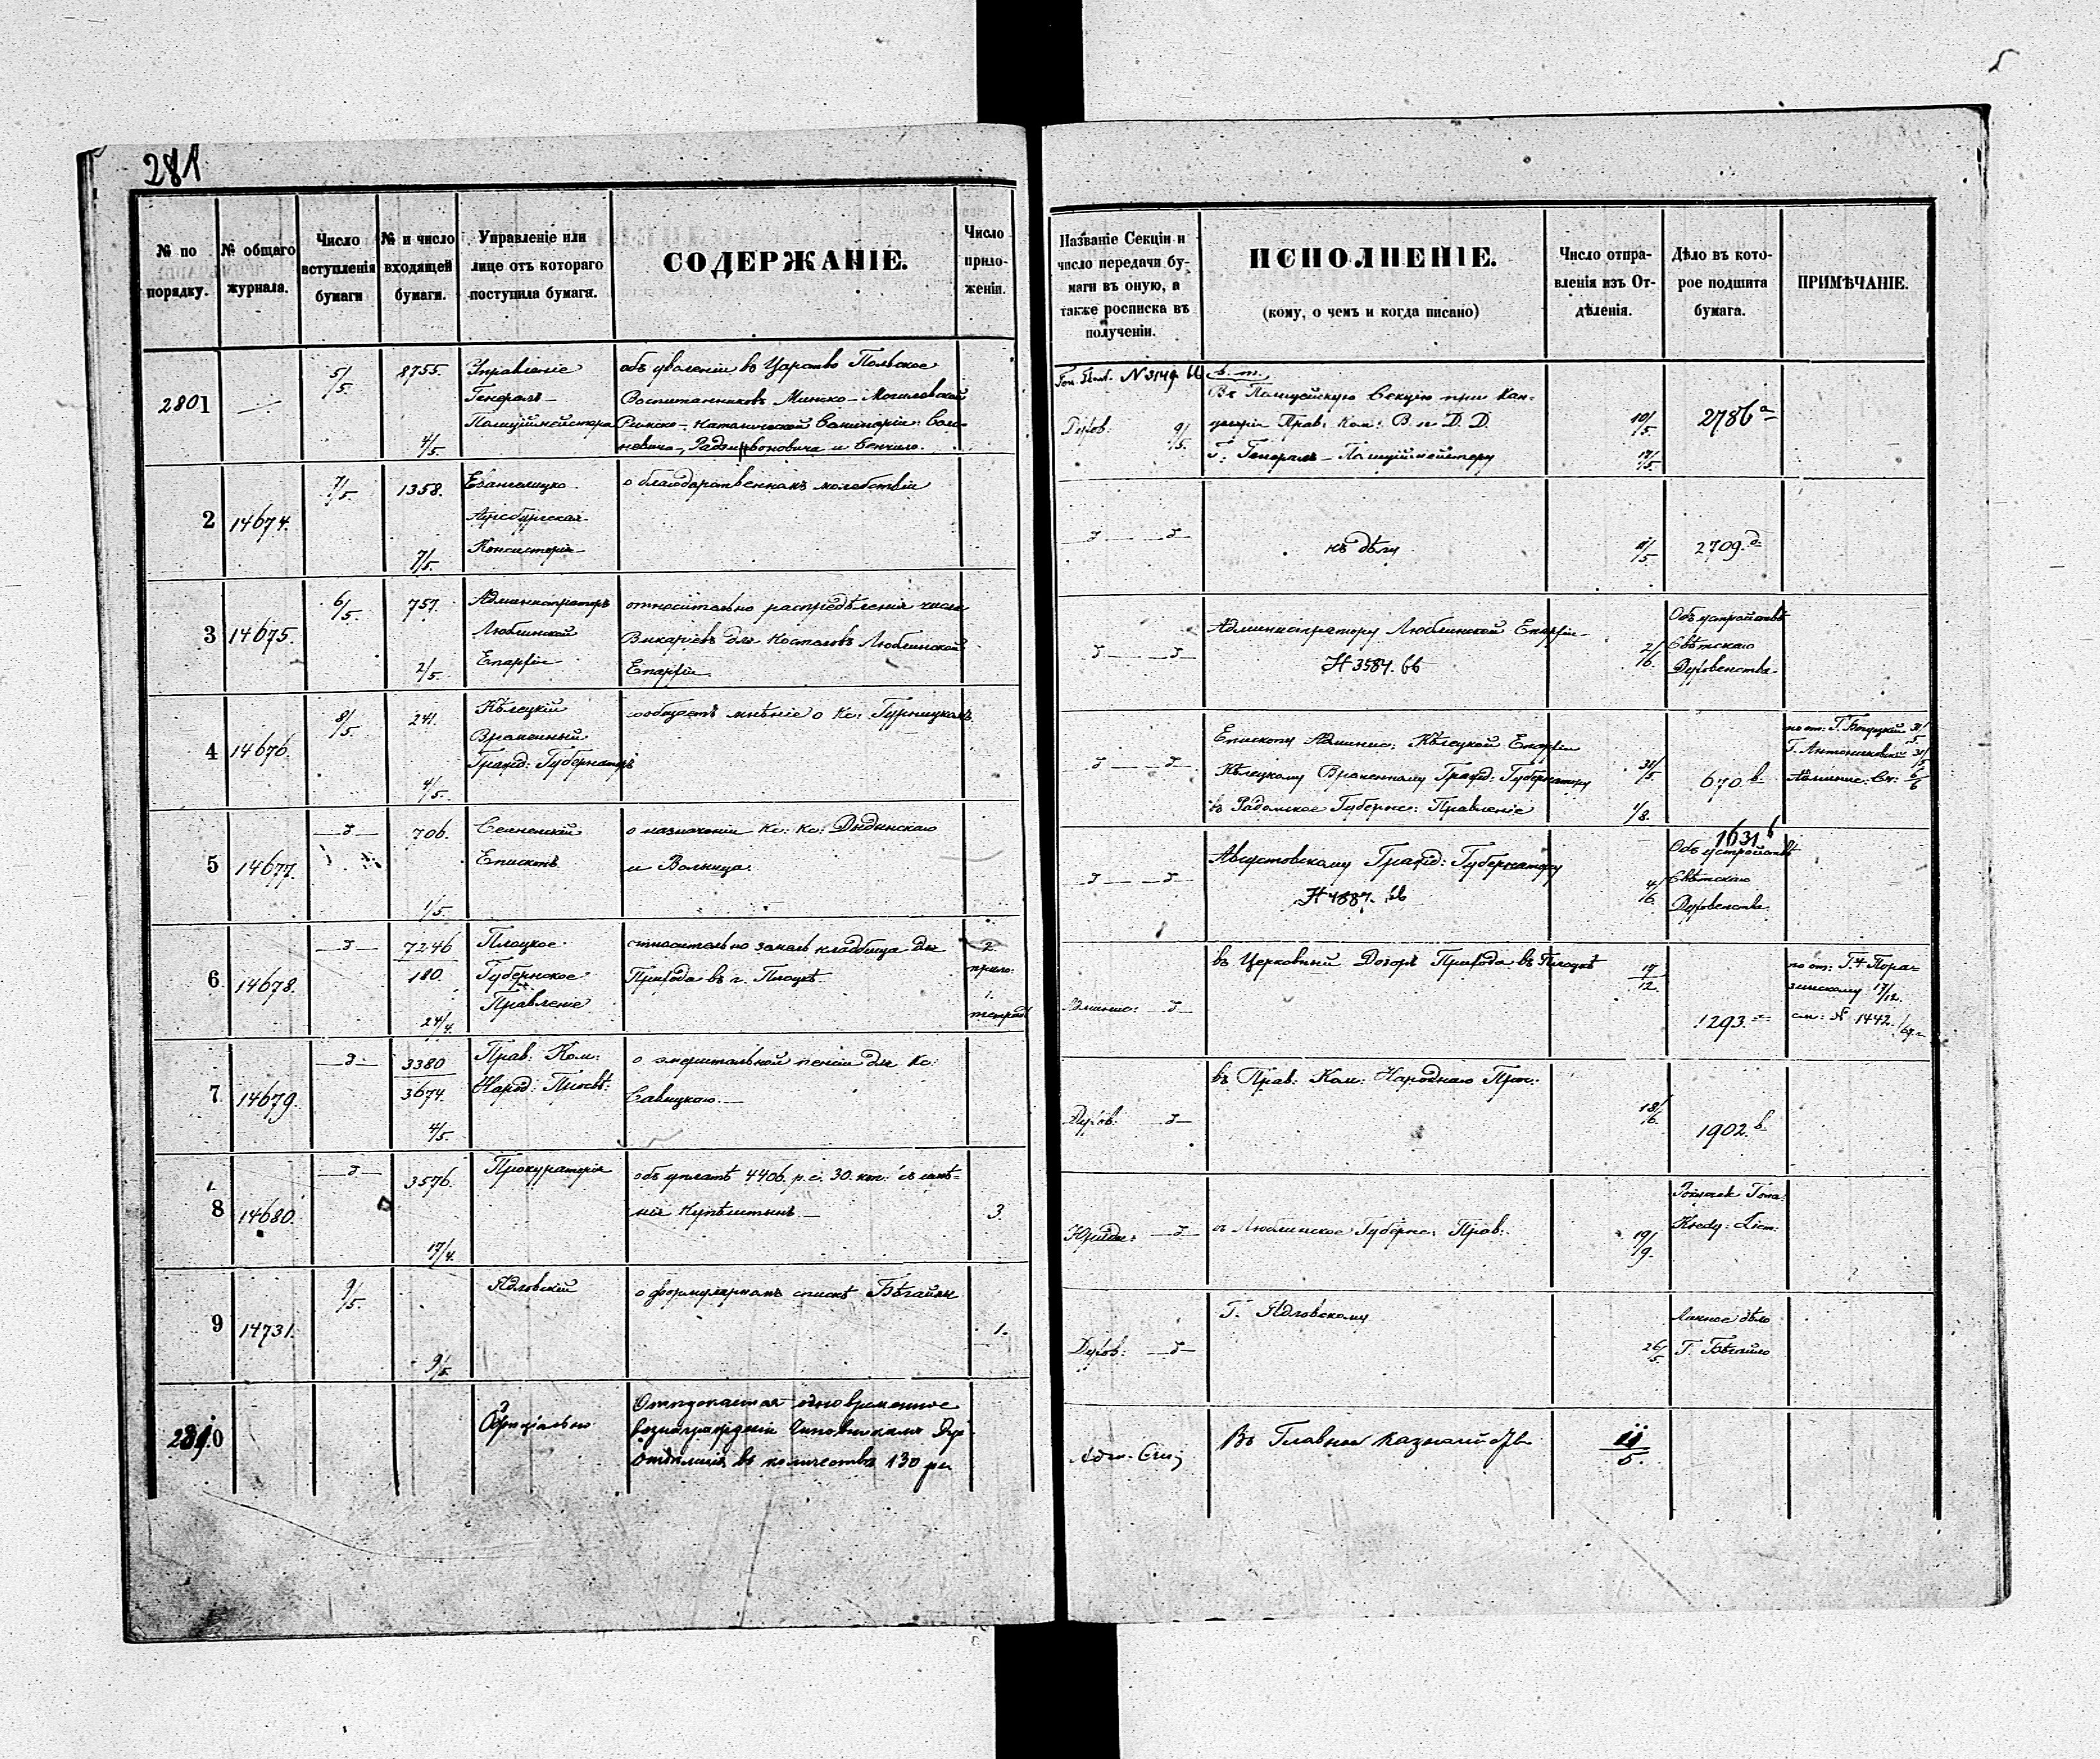 281
№ по порядку.
№ общаго журнала.
Число вступленія бумаги
№ и число входящей бумаги.
Управленіе или лице отъ котораго поступила бумага.
СОДЕРЖАНІЕ.
Число приложеніи.
Названіе Секціи и число передачи бумаги въ оную, а также росписка въ полученіи.
ИСПОЛНЕНІЕ.
(кому, о чемъ и когда писано)
Число отправленія изъ Отдѣленія.
Дѣло въ которое подшита бумага.
ПРИМѢЧАНІЕ.
2801
5/5
8755.
4/5.
Управленіе
Генералъ-
Полицiймейстера
объ уволеніи въ Царство Польское
Воспитанниковъ Минско-Могилевской
Римско-Католической Семинаріи:
Духов. 9/5.
Въ Полицейскую Секцію при Кан-
целяріи Прав: Ком: В. и Д. Д.
Г. Генералъ-Полиціймейстеру
10/5.
17/5.
2786 а
2
14674.
7/5.
1358.
7/5.
Евангелицко
Аугсбургская
Консисторія
о благодарственномъ молебствіи
къ дѣлу
11/5
2709. д
3
14675.
6/5.
757.
2/5
Администраторъ
Люблинской
Епархіи
относительно распредѣленія числа
Викаріевъ для Костеловъ Люблинской
Епархіи
Администратору Люблинской Епархіи
№ 3587. 66
2/6.
Объ устройствѣ
Свѣтскаго
Духовенства
4
14676.
8/5.
241.
4/5.
Кѣлецкій
Временный
Гражд: Губернаторъ
сообщаетъ мнѣніе о Кс: Гурницкомъ.
Епископу Админис: Кѣлецкой Епархіи
Кѣлецкому Временному Гражд: Губернатору
въ Радомское Губернс: Правленіе
31/5
1/8.
670. в.
5
14677.
706.
1/5.
Сейненскій
Епископъ
о назначеніи Кс: Кс: Дыдинскаго
и Волынца.
Августовскому Гражд: Губернатору
№ 4887. 66
4/6.
1631 б
Объ устройствѣ
Свѣтскаго
Духовенства
6
14678.
7246
180.
24/4.
Плоцкое
Губернское
Правленіе
относительно земель кладбища для
Прихода въ г. Плоцкѣ
2.
прило:
1.
тетрадь
Админис:
въ Церковный Дозоръ Прихода въ Плоцкѣ
17/12.
1293.
17/12.
см: № 1442.
7
14679.
3380
3674.
4/5.
Прав: Ком:
Народ: Просв:
о эмеритальной пенсіи для Кс:
Савицкаго.
Духов:
въ Прав: Ком: Народнаго Прос:
18/6.
1902. в
8
14680.
3576.
17/4.
Прокураторія
объ уплатѣ 4406. р. с. 30. коп: съ имѣ-
нія
3.
Юриди:
въ Люблинское Губернс: Прав:
19/9.
9
14731.
9/5.
9/5.
Ядловскій
о формулярномъ спискѣ
1.
Духов:
Г. Ядловскому
26/5.
Личное дѣло
2810
Официально
одновременное
вознагражденіи Чиновникамъ Дух.
Отдѣленія въ количествѣ 130 ру
Въ Главное Казначейство
11/5.